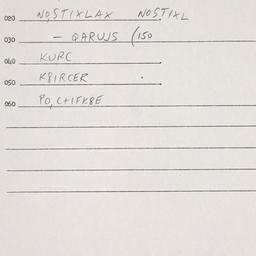 020 NO,STIXLAX NOSTIXL
030 - QARUJS (150
040 KURC
050 K8IRCER
060 PO,CHIFK8E